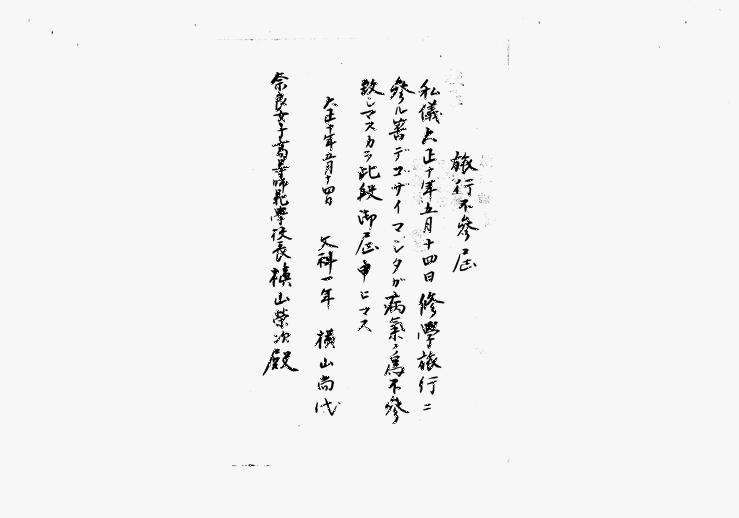 旅行不參屆
私儀大正十年五月十四日修學旅行ニ
參ル筈デゴザイマシタガ病氣ノ爲不參
致シマスカラ此段御屆申シマス
大正十年五月十四日　文科一年　横山尚代
奈良女子高等師範學校長横山榮次殿